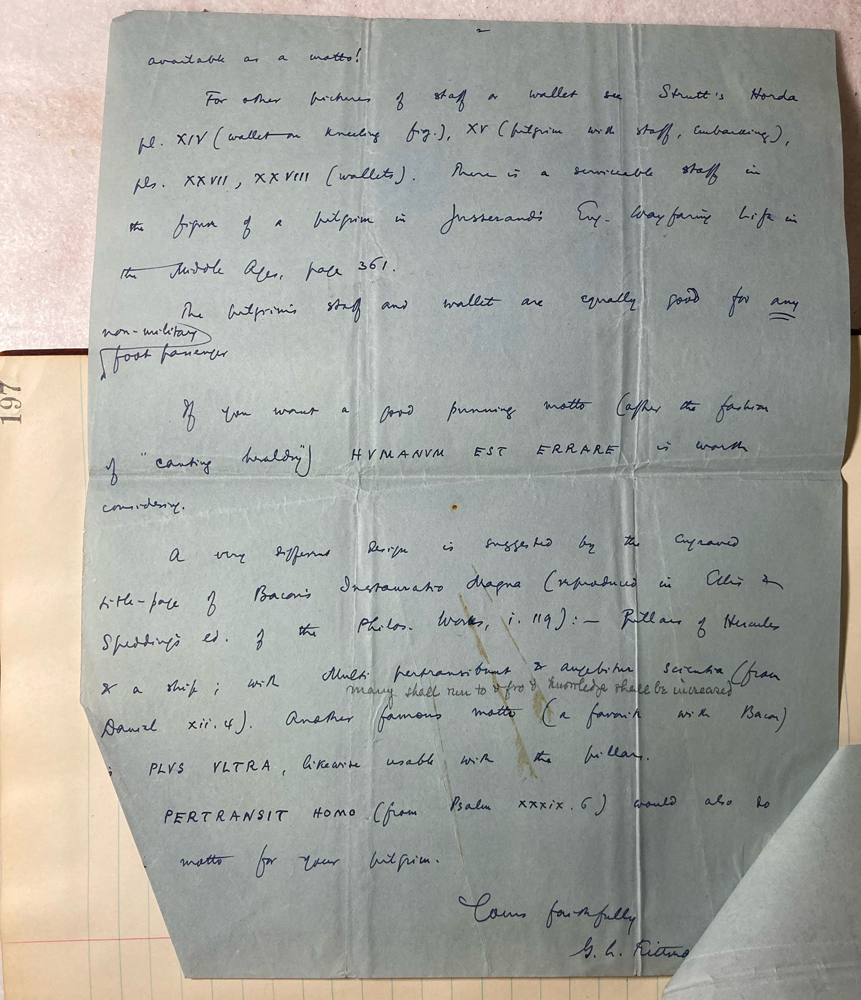 2
available as a motto!
For other pictures of staff or wallet see Strutt's Horda
pl. XIV (wallet on kneeling fig.), XV (pilgrim with staff, embarking),
pls. XXVII, XXVIII (wallets). There is a serviceable staff in
the figure of a pilgrim in Jusserand's Eng. Wayfaring Life in
the Middle Ages, page 361.
The pilgrim's staff and wallet are equally good for any
non-military
foot passenger
If you want a good punning motto (after the fashion
of "canting heraldry") HVMANVM EST ERRARE is worth
considering.
A very different design is suggested by the engraved
title-page of Bacon's Instauratio Magna (reproduced in Ellis &
Spedding's ed. of the Philos. Works, i. 119):— Pillars of Hercules
& a ship; with Multi pertransibunt & augebitur scientia (from
many shall run to & fro & knowledge shall be increased
Daniel xii. 4). Another famous motto (a favorite with Bacon)
PLVS VLTRA, likewise usable with the pillars.
PERTRANSIT HOMO (from Psalm xxxix. 6) would also do
motto for your pilgrim.
Yours faithfully
G. L.
197